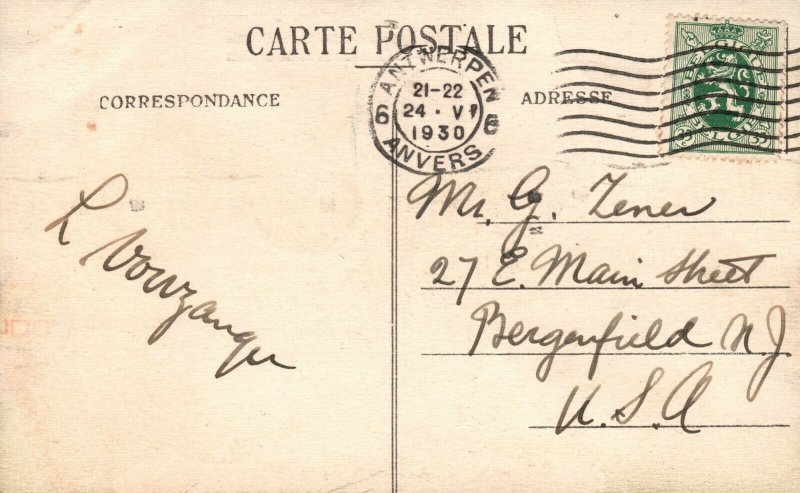 CARTE POSTALE
CORRESPONDANCE
ADRESSE
ANTWERPEN
21-22
24 · VI
1930
6 6
ANVERS
Mr. G. Zener
27 E. Main Street
Bergenfield N.J.
U.S.A
L